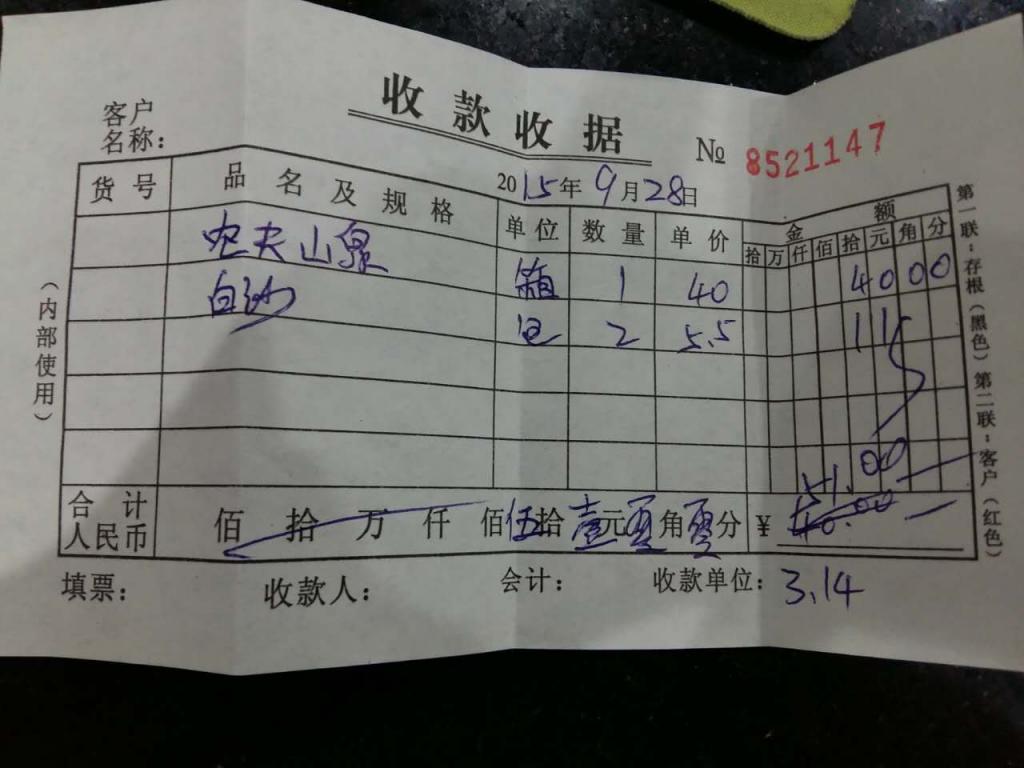 收款收据
客户
名称：
№ 8521147
2015年9月28日
货号 品名及规格 单位 数量 单价 金额
拾 万 仟 佰 拾 元 角 分
农夫山泉 箱 1 40 4000
白沙 包 2 5.5 11
合计
人民币 佰 拾 万 仟 佰 伍拾 壹元 零角 零分 ¥ 51.00
40.00
填票： 收款人： 会计： 收款单位： 3.14
（内部使用）
第一联：存根（黑色）第二联：客户（红色）